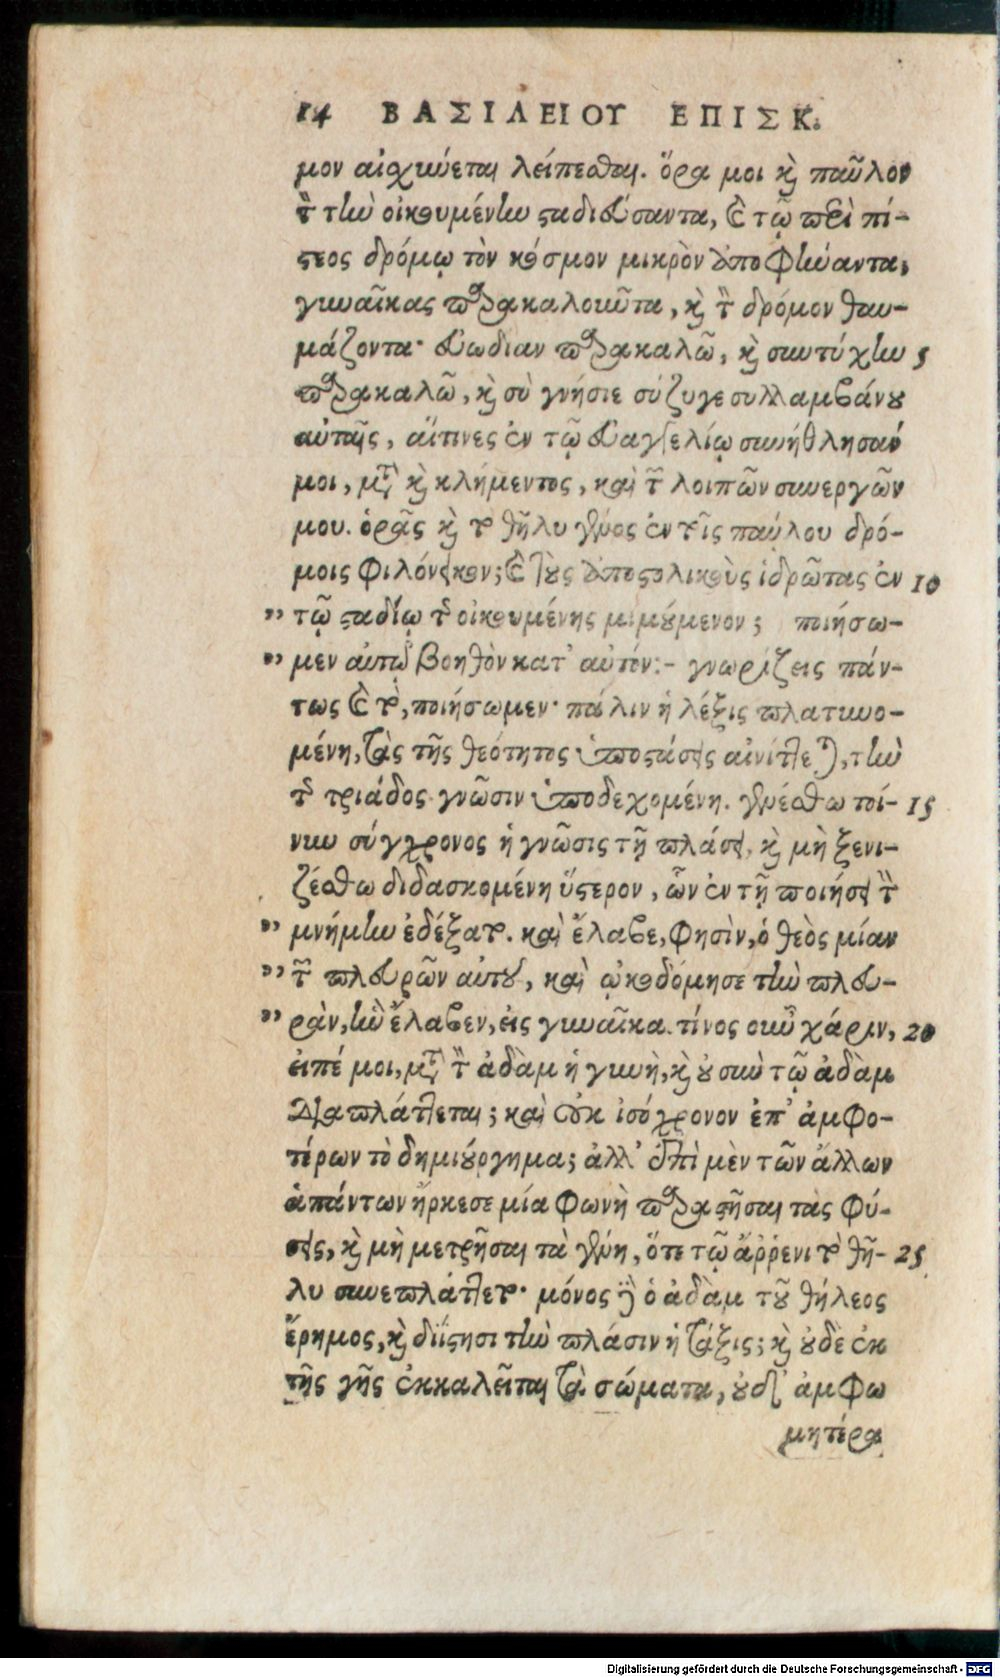 14 ΒΑΣΙΛΕΙΟΥ ΕΠΙΣΚ.
μον αἰσχύνεται λείπεσθαι. ὅρα μοι καὶ παῦλον
τὸν τὴν οἰκουμένην σταδιεύσαντα, καὶ τῷ περὶ πί-
στεος δρόμῳ τὸν κόσμον μικρὸν ἀποφήναντα,
γυναῖκας παρακαλοῦντα, καὶ τὸν δρόμον θαυ-
μάζοντα· εὐωδιαν παρακαλῶ, καὶ συντύχην 5
παρακαλῶ, καὶ σὺ γνήσιε σύζυγε συλλαμβάνου
αὐταῖς, αἵτινες ἐν τῷ εὐαγγελίῳ συνήθλησαν
μοι, μετὰ καὶ κλήμεντος, καὶ τῶν λοιπῶν συνεργῶν
μου. ὁρᾶς καὶ τὸ θῆλυ γένος ἐν τοῖς παύλου δρό-
μοις φιλόνεικον; καὶ τοὺς ἀποστολικοὺς ἱδρῶτας ἐν 10
„ τῷ σταδίῳ τῆς οἰκουμένης μιμούμενον; ποιήσω-
„ μεν αὐτῷ βοηθὸν κατ' αὐτόν:- γνωρίζεις πάν-
τως καὶ τὸ, ποιήσωμεν· πάλιν ἡ λέξις πλατυνο-
μένη, τὰς τῆς θεότητος ὑποστάσεις αἰνίττεται, τὴν
τῆς τριάδος γνῶσιν ὑποδεχομένη. γενέσθω τοί- 15
νυν σύγχρονος ἡ γνῶσις τῇ πλάσει, καὶ μὴ ξενι-
ζέσθω διδασκομένη ὕστερον, ὧν ἐν τῇ ποιήσει τὴν
„ μνήμην ἐδέξατο. καὶ ἔλαβε, φησὶν, ὁ θεὸς μίαν
„ τῶν πλευρῶν αὐτοῦ, καὶ ᾠκοδόμησε τὴν πλευ-
„ ρὰν, ἣν ἔλαβεν, εἰς γυναῖκα. τίνος οὖν χάριν, 20
εἰπέ μοι, μετὰ τὸν ἀδὰμ ἡ γυνὴ, καὶ οὐ σὺν τῷ ἀδὰμ
διαπλάττεται; καὶ οὐκ ἰσόχρονον ἐπ' ἀμφο-
τέρων τὸ δημιούργημα; ἀλλ' ἐπὶ μὲν τῶν ἄλλων
ἁπάντων ἤρκεσε μία φωνὴ παραστῆσαι τὰς φύ-
σεις, καὶ μὴ μετρῆσαι τὰ γένη, ὅτε τῷ ἄῤῥενι τὸ θῆ- 25
λυ συνεπλάττετο· μόνος δὲ ὁ ἀδὰμ τοῦ θήλεος
ἔρημος, καὶ διΐστησι τὴν πλάσιν ἡ τάξις; καὶ οὐδὲ ἐκ
τῆς γῆς ἐκκαλεῖται τὰ σώματα, οὐδ' ἀμφω
μητέρα
Digitalisierung gefördert durch die Deutsche Forschungsgemeinschaft - DFG